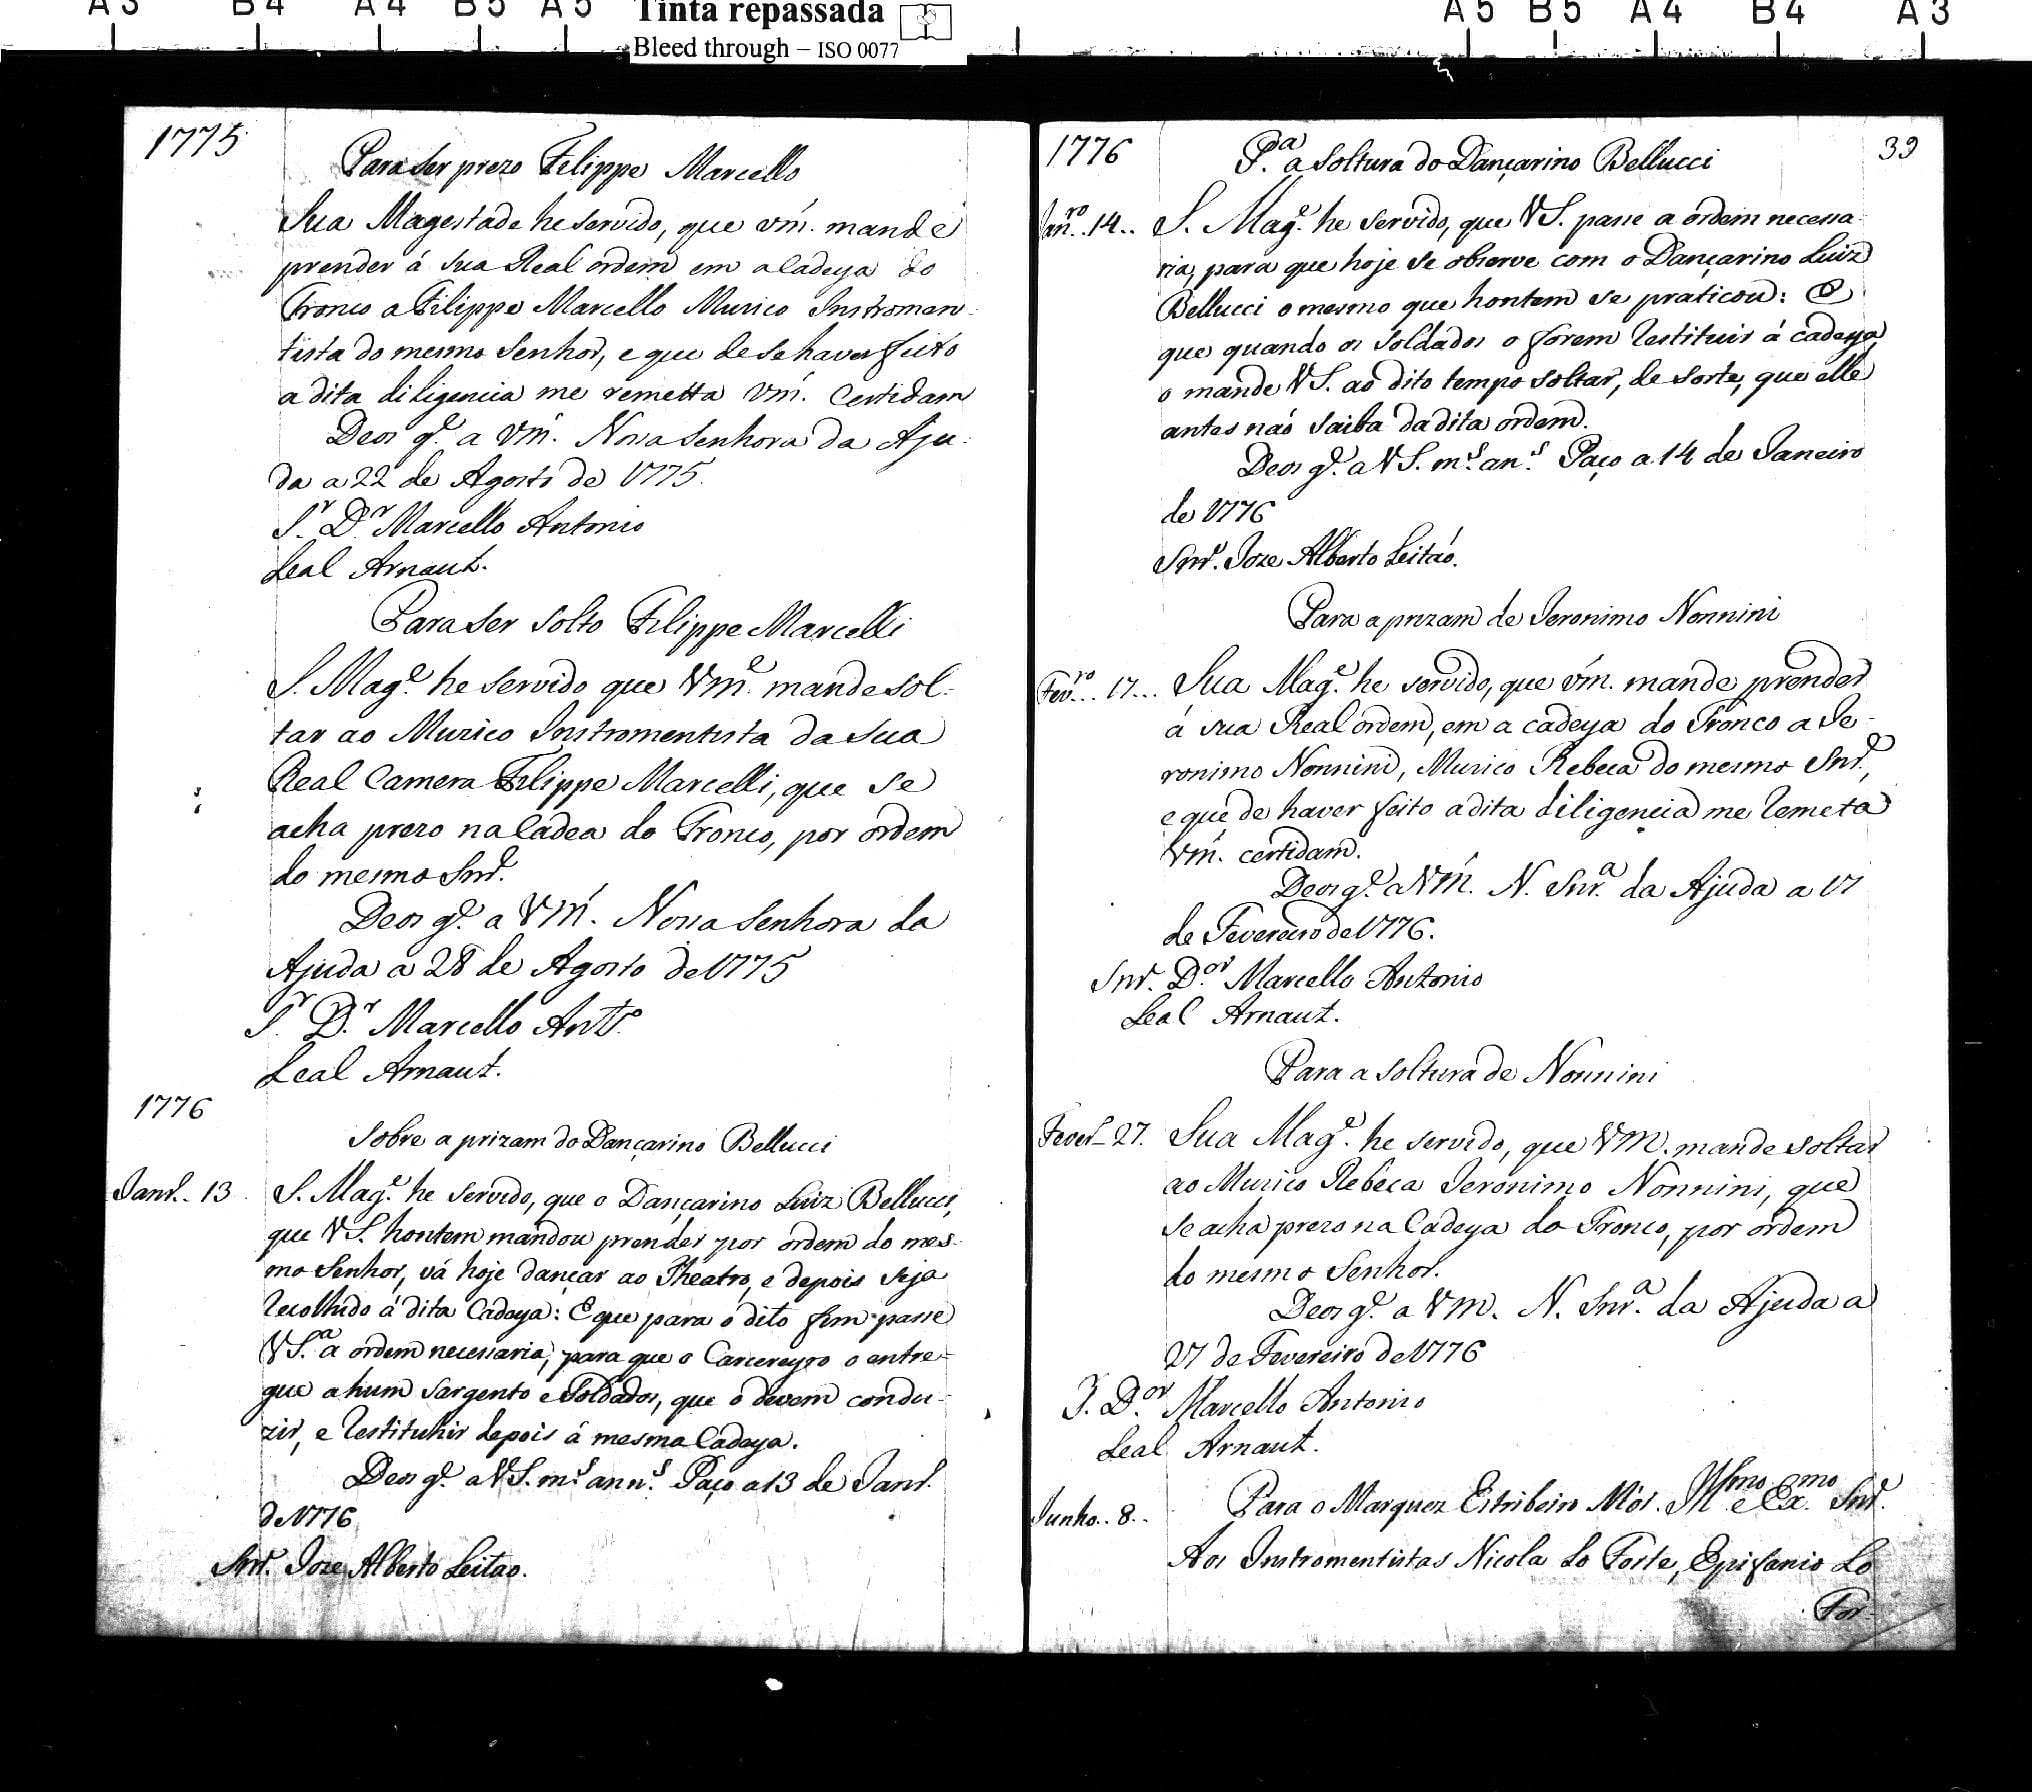 A3 B4 A4 B5 A5 Tinta repassada A5 B5 A4 B4 A3
Bleed through – ISO 0077
1775
Para ser prezo Filippe Marcello
Sua Magestade he servido, que vm. mande
prender á sua Real ordem em a Cadeya do
Tronco a Filippe Marcello Muzico Instromen-
tista do mesmo Senhor, e que de se haver feito
a dita diligencia me remetta Vm. Certidam
Deos g.e a Vm. Nossa Senhora da Aju-
da a 22 de Agosto de 1775.
S.r D.r Marcello Antonio
Leal Arnaut.
Para ser solto Filippe Marcelli
S. Mag.e he servido que Vm.e mande sol-
tar ao Muzico Instromentista da sua
Real Camera Filippe Marcelli, que se
acha prezo na Cadea do Tronco, por ordem
do mesmo Snr.
Deos g.e a Vm. Nossa Senhora da
Ajuda a 28 de Agosto de 1775
S.r D.r Marcello Ant.o
Leal Arnaut.
1776
Sobre a prizam do Dançarino Bellucci
Janr. 13 S. Mag.e he servido, que o Dançarino Luiz Bellucci,
que V S. hontem mandou prender por ordem do mes-
mo Senhor, vá hoje dançar ao Theatro, e depois seja
recolhido á dita Cadeya: E que para o dito fim passe
V S.a a ordem necessaria, para que o Carcereyro o entre-
gue a hum Sargento e Soldados, que o devem condu-
zir, e restituhir depois á mesma Cadeya.
Deos g.e a V S. m.s ann.s Paço a 13 de Janr.
de 1776
Snr. Joze Alberto Leitao.
1776 39
P.a a soltura do Dançarino Bellucci
Jan.ro 14.. S. Mag.e he servido, que V S. passe a ordem necessa-
ria, para que hoje se observe com o Dançarino Luiz
Bellucci o mesmo que hontem se praticou: E
que quando os Soldados o forem restituir á cadeya,
o mande V S. ao dito tempo soltar, de sorte, que elle
antes náo saiba da dita ordem.
Deos g.e a V S. m.s an.s Paço a 14 de Janeiro
de 1776
Snr. Joze Alberto Leitáo.
Para a prizam de Jeronimo Nonnini
Fev.ro.. 17... Sua Mag.e he servido, que vm. mande prender
á sua Real ordem, em a cadeya do Tronco a Je-
ronimo Nonnini, Muzico Rebeca do mesmo Snr.,
e que de haver feito a dita diligencia me remeta
Vm. certidam.
Deos g.e a Vm. N. Snr.a da Ajuda a 17
de Fevereiro de 1776.
Snr. D.or Marcello Antonio
Leal Arnaut.
Para a soltura de Nonnini
Fever. 27. Sua Mag.e he servido, que Vm. mande soltar
ao Muzico Rebeca Jeronimo Nonnini, que
se acha prezo na Cadeya do Tronco, por ordem
do mesmo Senhor.
Deos g.e a Vm. N. Snr.a da Ajuda a
27 de Fevereiro de 1776
S. D.or Marcello Antonio
Leal Arnaut.
Junho.. 8.. Para o Marquez Estribeiro Mór. Ill.mo e Ex.mo Snr.
Aos Instromentistas Nicola Lo Forte, Epifanio Lo
For-